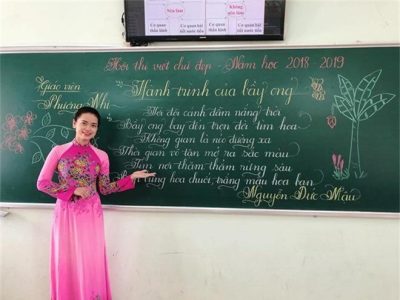 Nên làm
Không nên làm
Cơ quan thần kinh
Cơ quan bài tiết nước tiểu
Cơ quan thần kinh
Cơ quan bài tiết nước tiểu
Hội thi viết chữ đẹp - Năm học 2018 - 2019
Giáo viên
Phương Nhi
Hành trình của bầy ong
Với đôi cánh đẫm nắng trời
Bầy ong bay đến trọn đời tìm hoa
Không gian là nẻo đường xa
Thời gian vô tận mở ra sắc màu
Tìm nơi thăm thẳm rừng sâu
cùng hoa chuối, trắng màu hoa ban
Nguyễn Đức Mậu